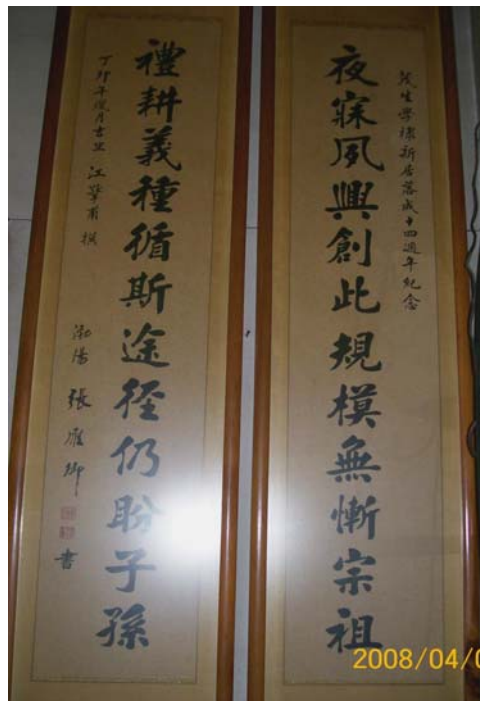 茂生學棣新居落成十四週年紀念
夜寐夙興創此規模無慚宗祖
禮耕義種循斯途徑仍盼子孫
丁卯年 月吉旦 江擎甫 撰
陽 張雁 書
2008/04/0